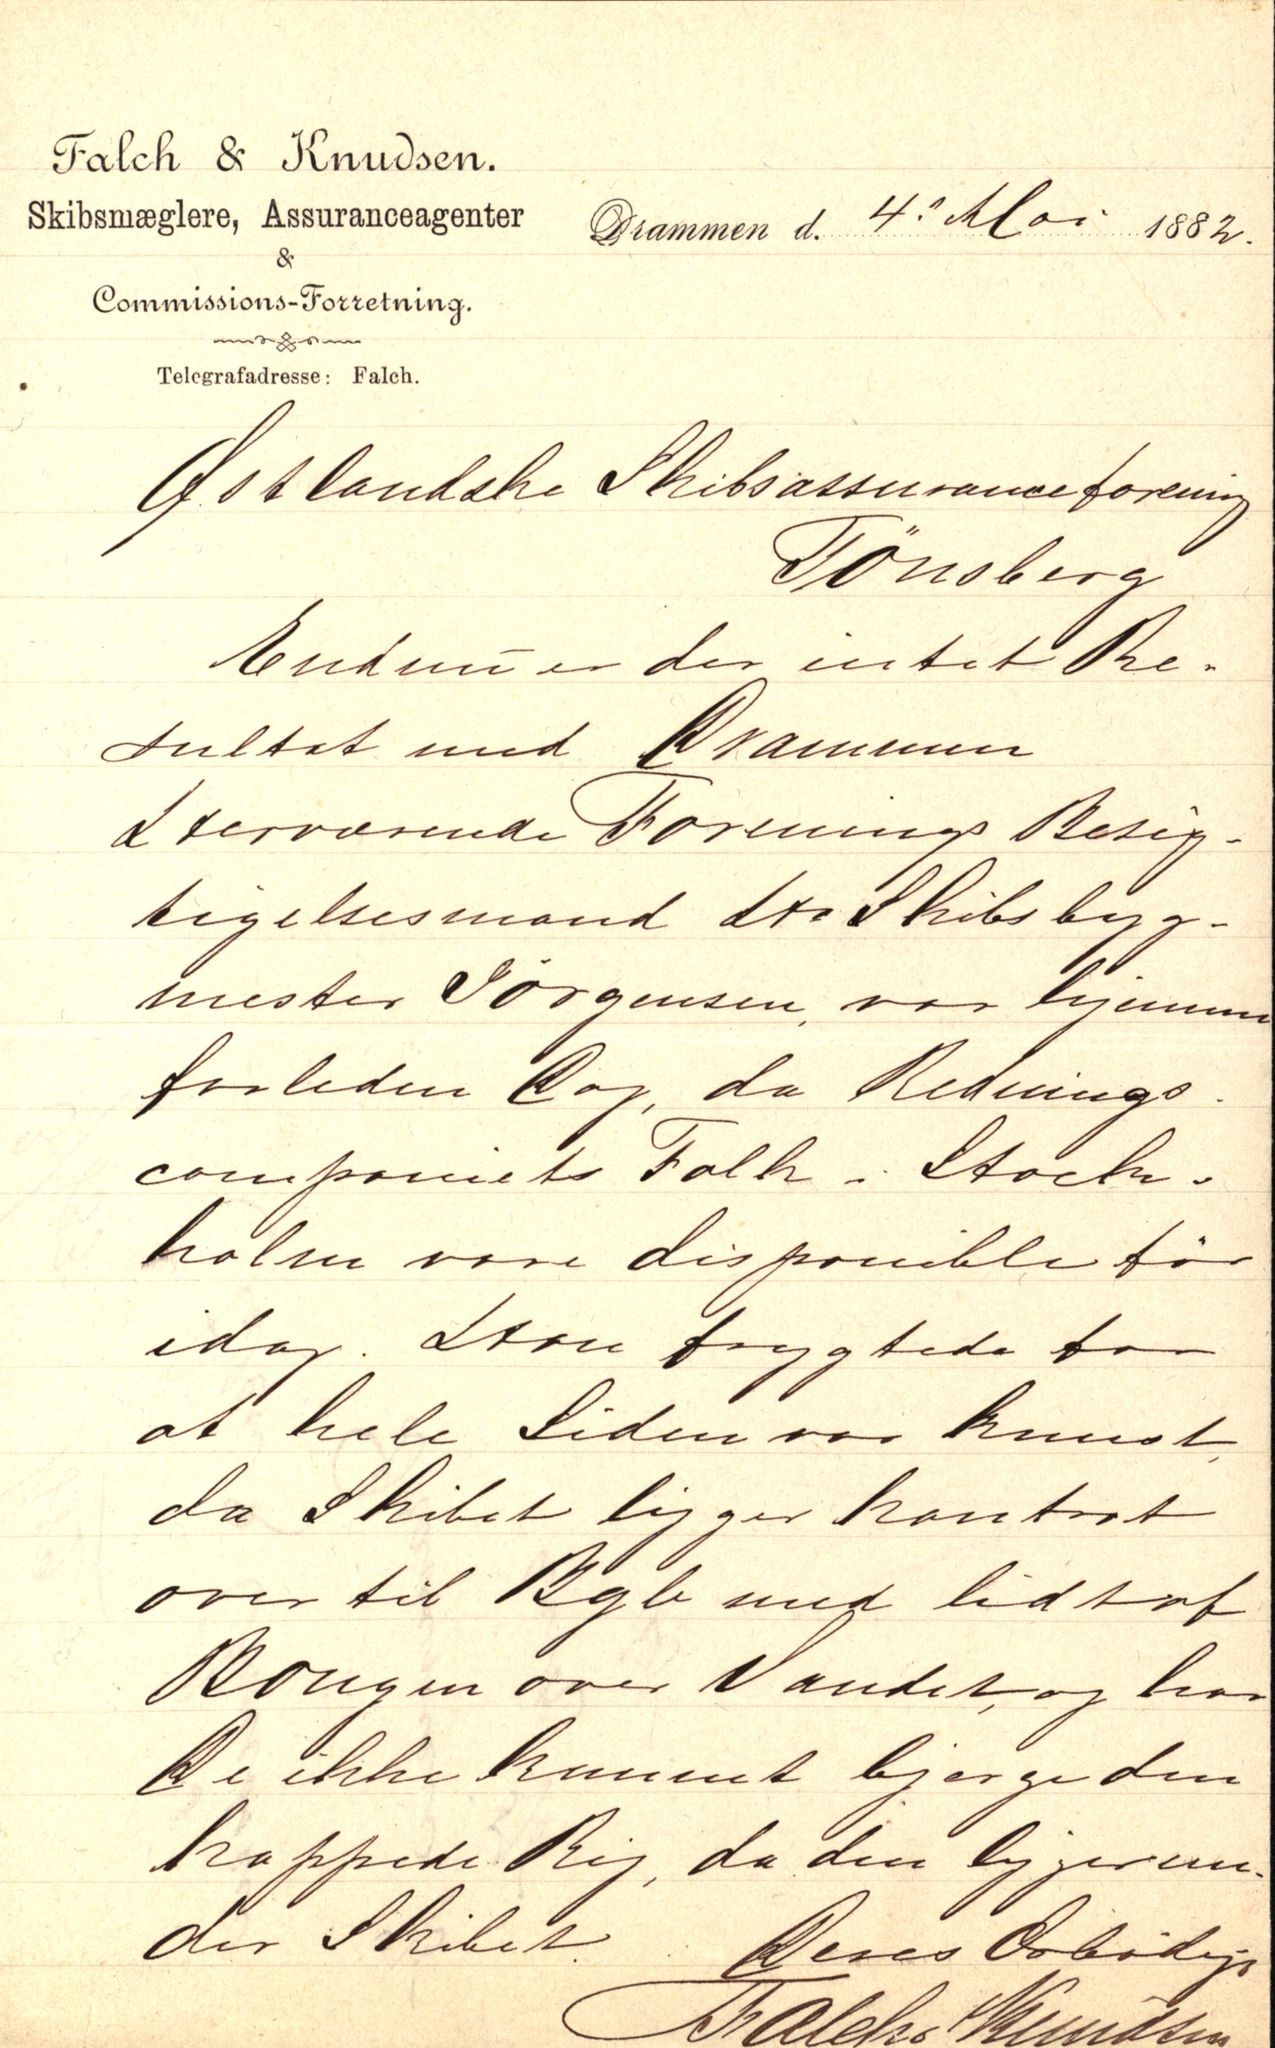 Falch & Knudsen.
Skibsmæglere, Assuranceagenter
&
Commissions-Forretning.
Telegrafadresse: Falch.
Drammen d. 4' Mai 1882.
Østlandske Skibsassuranceforening
Tönsberg
Endnu er der intet Re-
sultat med Drammen
Herværende Forenings Besig-
tigelsesmand Hr Skibsbyg-
mester Jörgensen, var hjemme
forleden Dag, da Rednings-
compani​ets Folk i Stock-
holm vare disponible för
idag. Han frygtede for
at hele Siden var knust,
da Skibet ligger kantret
over til Bgb med lidt af
Bougen over Vandet, og har
De ikke kunnet bjerge den
kappede Rig, da den ligger un-
der Skibet.
Deres Örbödige
Falch & Knudsen